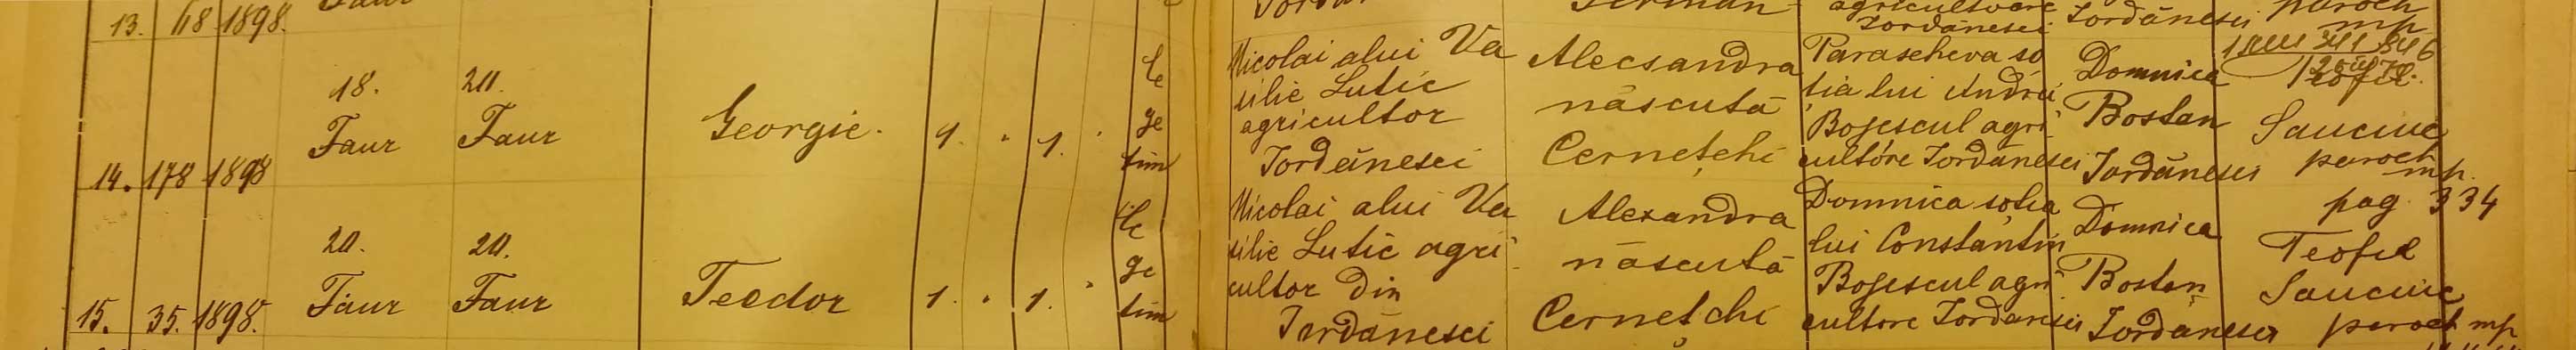 13. 118 1898.
Iordănesci Iordănesci paroch
mp
14. 178 1898 18. Faur 20. Faur Georgie. 1. " 1. " le
ge
tim
Nicolai alui Va
silie Lutic
agricultor
Iordănesci
Alecsandra
născută
Cernețchi
Parascheva so
ția lui Andrei
Bojescul agri
cultóre Iordănesci
Domnica
Bostan
Iordănesci
Sauciuc
paroch
mp.
pag 334
15. 35. 1898. 20. Faur 20. Faur Teodor 1. " 1. " le
ge
tim
Nicolai alui Va
silie Lutic agri
cultor din
Iordănesci
Alexandra
născută
Cernețchi
Domnica soția
lui Constantin
Bojescul agri
cultore Iordanesci
Domnica
Bostan
Iordănesci
Teofil
Sauciuc
paroch mp